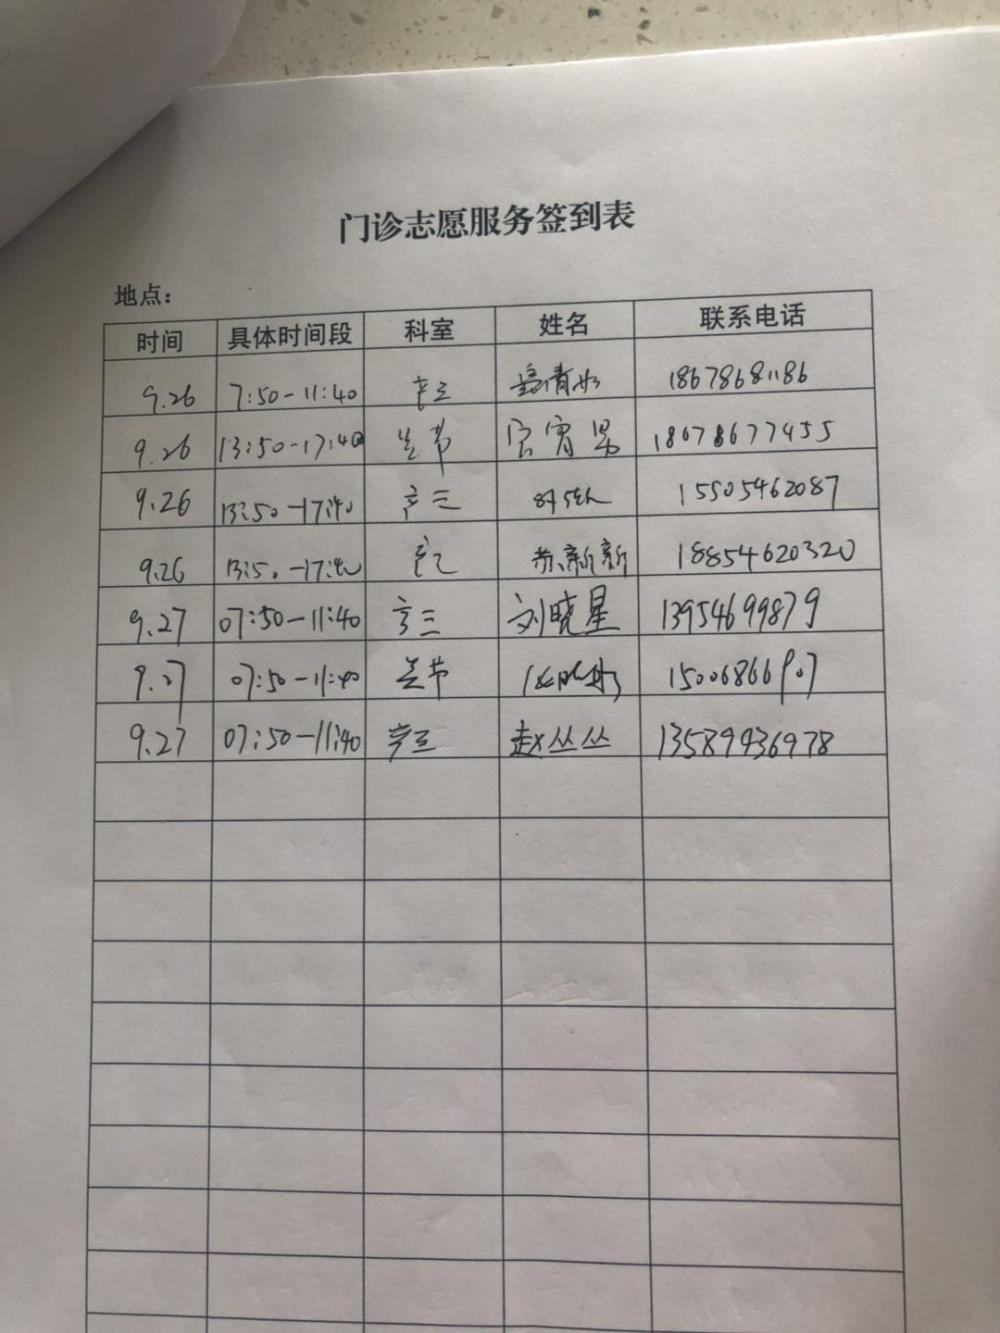 门诊志愿服务签到表
地点：
时间 具体时间段 科室 姓名 联系电话
9.26 7:50-11:40 18678681186
9.26 13:50-17:40 18678677455
9.26 13:50-17:40 产三 15505462087
9.26 13:50-17:40 苏新新 18854620320
9.27 07:50-11:40 刘晓星 13954699879
9.27 07:50-11:40 15006866907
9.27 07:50-11:40 赵丛丛 13589936978